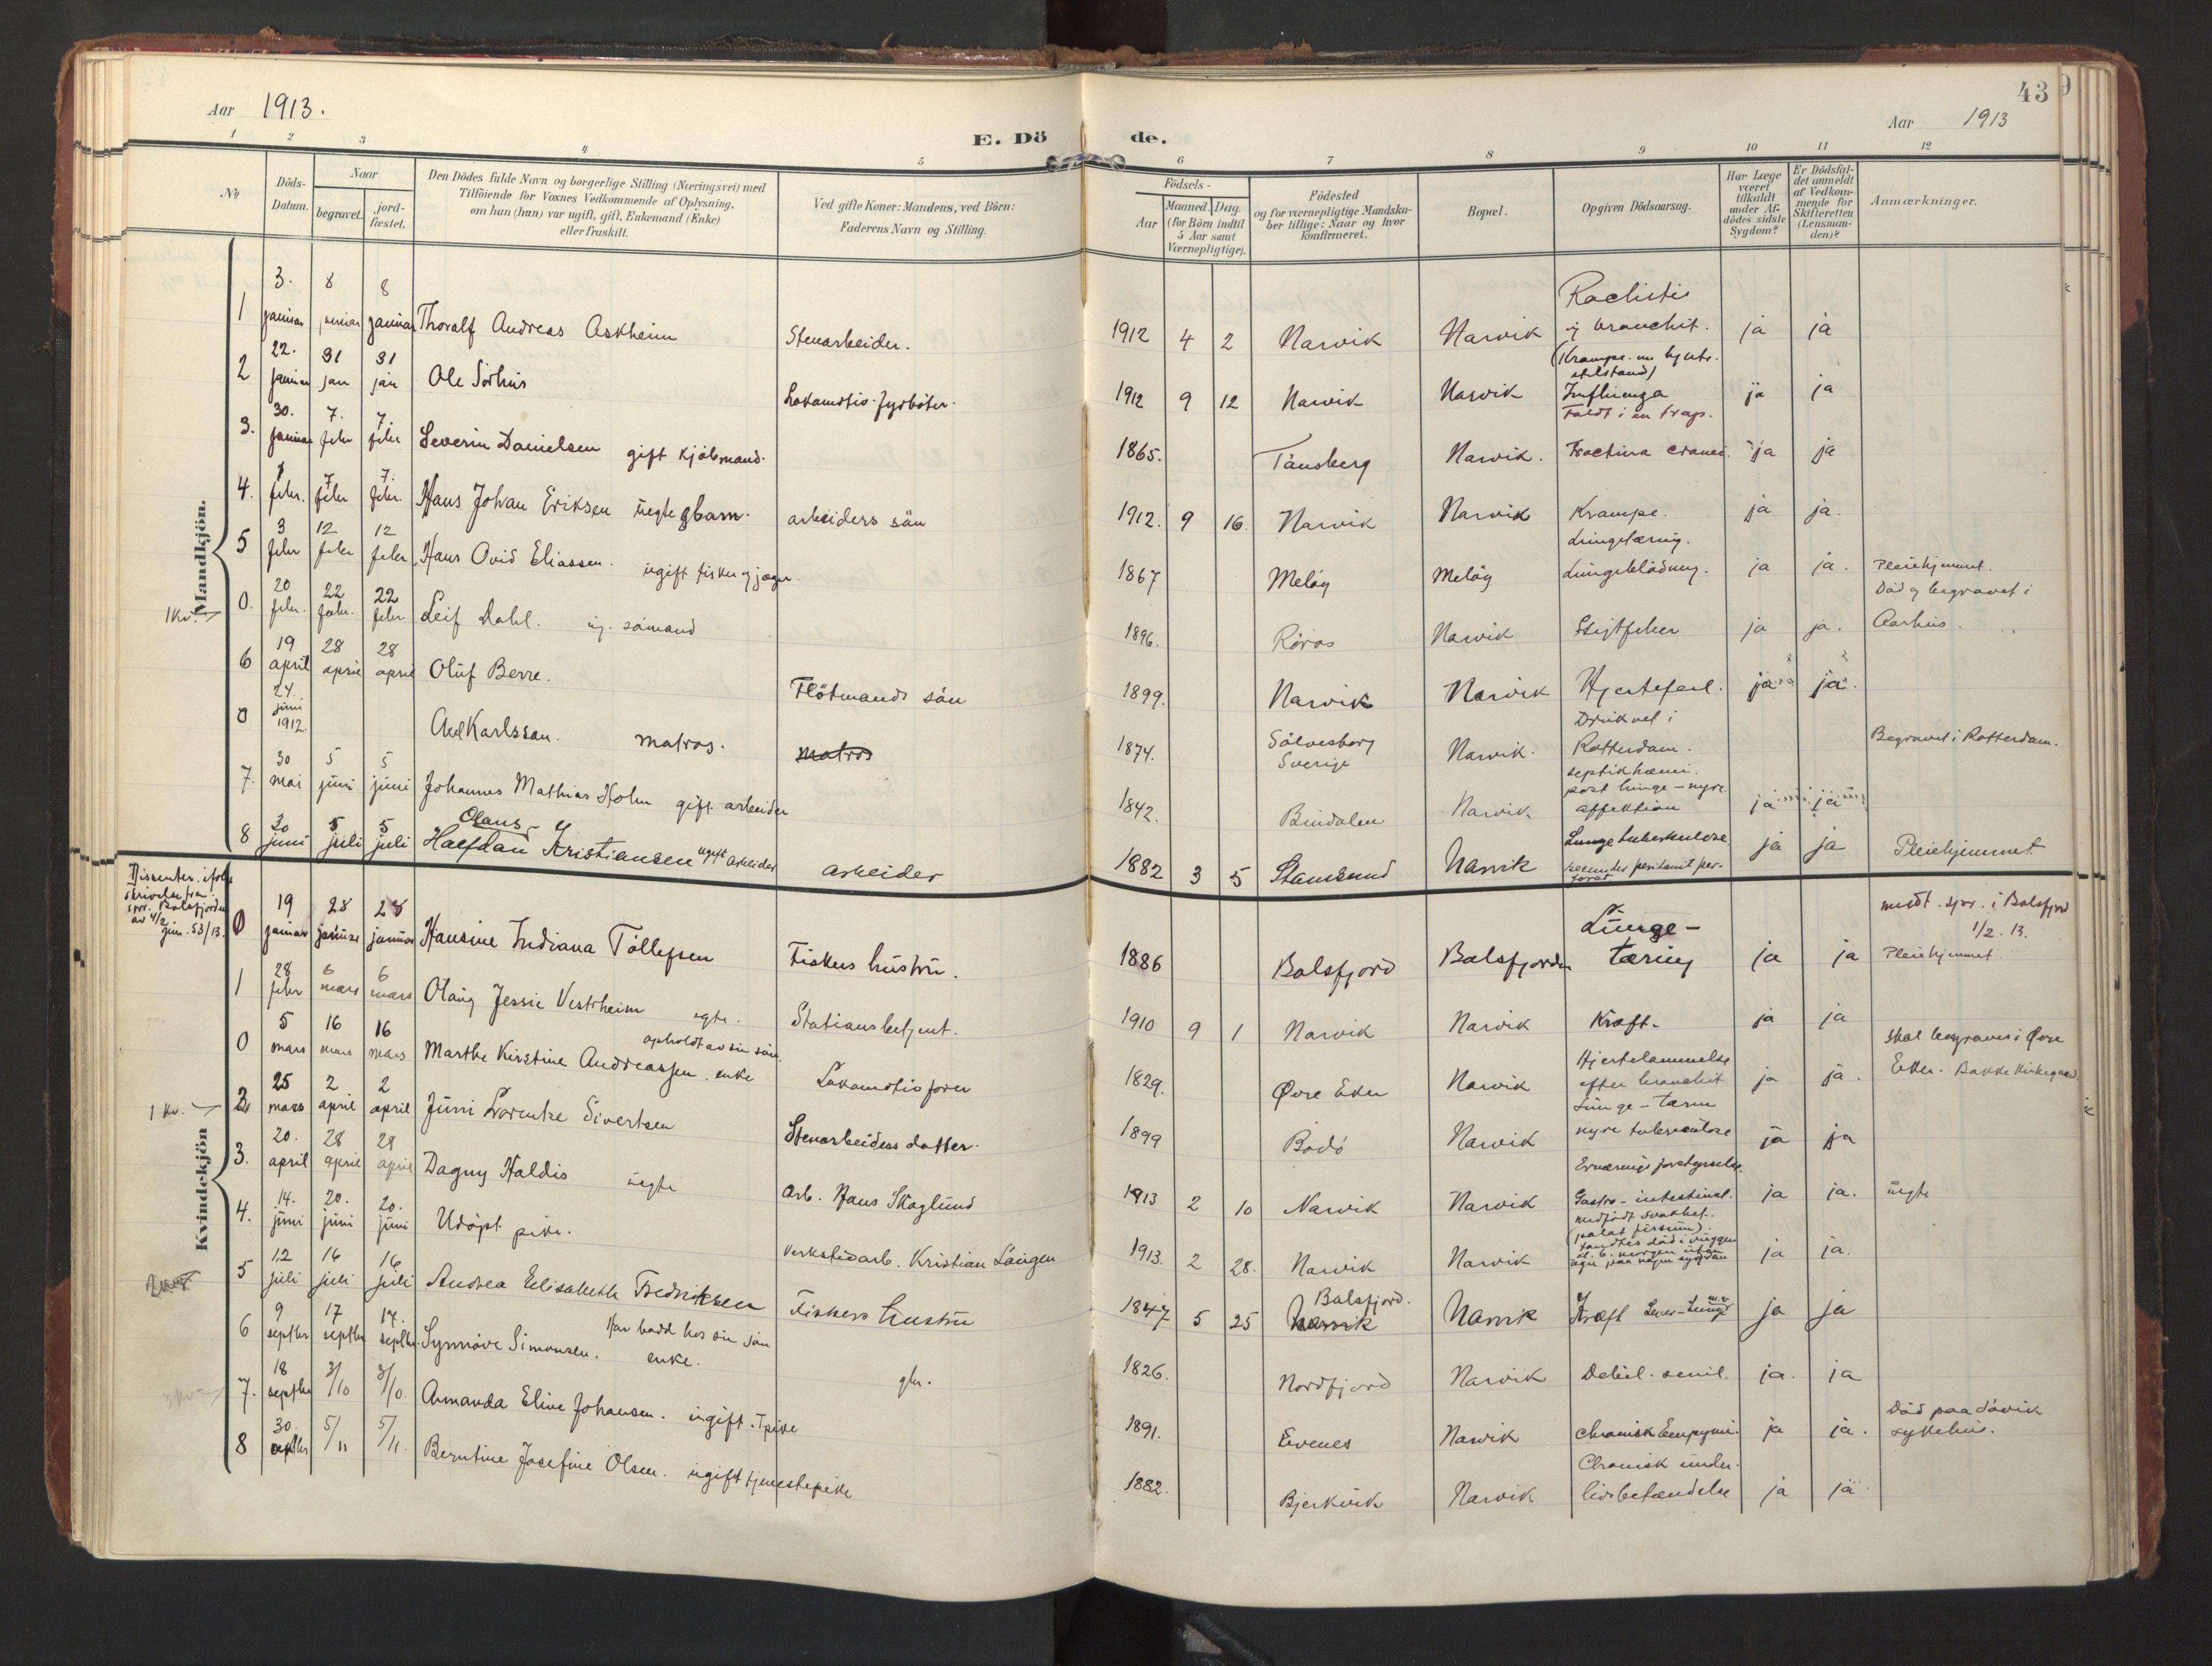 43
Aar 1913.
E. Döde.
Aar 1913
1 2 3 4 5 6 7 8 9 10 11 12
№
Döds-Datum.
Naar
begravet.
jord-fæstet.
Den Dödes fulde Navn og borgerlige Stilling (Næringsvei) med
Tilföiende for Voxnes Vedkommende af Oplysning,
om han (hun) var ugift, gift, Enkemand (Enke)
eller fraskilt.
Ved gifte Koner: Mandens, ved Börn:
Faderens Navn og Stilling.
Födsels-
Aar
Maaned. Dag.
(for Börn indtil
5 Aar samt
Værnepligtige).
Födested
og for værnepligtige Mandska-
ber tillige: Naar og hvor
konfirmeret.
Bopæl.
Opgiven Dödsaarsag.
Har Læge
været
tilkaldt
under Af-
dödes sidste
Sygdom?
Er Dödsfal-
det anmeldt
af Vedkom-
mende for
Skifteretten
(Lensman-
den)?
Anmærkninger.
Mandkjön.
1 3. januar 8 januar 8 januar Thoralf Andreas Askheim Stenarbeider. 1912 4 2 Narvik Narvik Rachitis og bronchit. (Krampe. ja ja
2 22. januar 31 jan 31 jan Ole Sörhus Lokomotiv-fyrböter. 1912 9 12 Narvik Narvik Influenza ja ja
3. 30. januar 7. febr 7. febr Severin Danielsen gift kjöbmand. 1865. Tönsberg Narvik. Faldt i en trap. ja ja
4. 1 febr. 7 febr 7. febr. Hans Johan Eriksen uegte barn. arbeiders sön 1912. 9 16. Narvik Narvik Krampe. ja ja.
5 3 febr 12 febr 12 febr Hans Ovid Eliassen. ugift fisker og jæger. 1867 Melöy Melöy Lungetæring. Lungeblödning. ja ja. Pleiehjemmet.
1 Kv.
0. 20 febr. 22 febr. 22 febr Leif Dahl. ug. sömand 1896. Röros Narvik ja ja. Död og begravet i Aarhus.
6 19 april 28 april 28 april Oluf Berre. Flötmands sön 1899. Narvik Narvik Hjertefeil. ja ja.
0 24. juni 1912. Axel Karlsson. matros. matros 1874. Sölvesborg Sverige Narvik. Druknet i Rotterdam. Begravet i Rotterdam.
7. 30 mai 5 juni 5 juni Johannes Mathias Holm gift. arbeider 1842. Bindalen Narvik. septikhæmi. post lunge-nyre affektion ja ja
8 30 juni 5 juli 5 juli Olaus Halfdan Kristiansen ugift arbeider arbeider 1882 3 5 Stamsund Narvik Lungetuberkulose. ja ja Pleiehjemmet
Kvindekjön
Dissenter. ifölge
skrivelse fra
spr. Balsfjorden
av 4/2
jnr. 53/13.
0 19 januar 28 januar 28 januar Hansine Indiana Tollefsen Fiskers hustru. 1886 Balsfjord Balsfjorden Lunge-tæring ja ja medt. spr. i Balsfjord 1/2. 13. Pleiehjemmet.
1 28 febr 6 mars 6 mars Olaug Jessie Vestrheim egte. Stationsbetjent. 1910 9 1 Narvik Narvik Kræft. ja ja
0 5 mars 16 mars 16 mars Marthe Kirstine Andreassen. enke opholdt av sin sön. Lokomotivförer 1829. Övre Eker Narvik Hjertelammelse efter bronchit ja ja. Skal begraves i Övre Eker. Bakke Kirkegaard.
1 Kv.
2. 25 mars 2 april 2 april Junni Lorentze Sivertsen Stenarbeiders datter. 1899 Bodö Narvik Lunge- nyre tuberculose ja ja
3. 20. april 28 april 28 april Dagny Haldis uegte Arb. Hans Skoglund 1913 2 10 Narvik Narvik Ernæringsforstyrrelse. Gastro-intestinal. ja ja. uegte
4. 14. juni 20. juni 20. juni Udöpt pike. Verkstedarb. Kristian Langen 1913. 2 28. Narvik Narvik medfödt svakhet. ja ja.
5 12 juli 16 juli 16 juli Andrea Elisabeth Fredriksen Fiskers hustru 1847 5 25 Balsfjord. Narvik Narvik Kræft Lever-Lunge m.v. ja ja
6 9 septbr 17 septbr 17. septbr Synnöve Simonsen. Har bodd hos sin sön enke. 1826. Nordfjord Narvik Debil. senil. ja. ja
3 Kv.
7. 18 septbr 3/10 3/10. Amanda Eline Johansen. ugift. Tpike 1891. Evenes Narvik chronisk Empyem. ja ja. Död paa Narvik sykehus.
8 30. 5/11 5/11. Berntine Josefine Olsen. ugift tjenestepike 1882. Bjerkvik Narvik Chronisk underlivsbetændelse ja ja